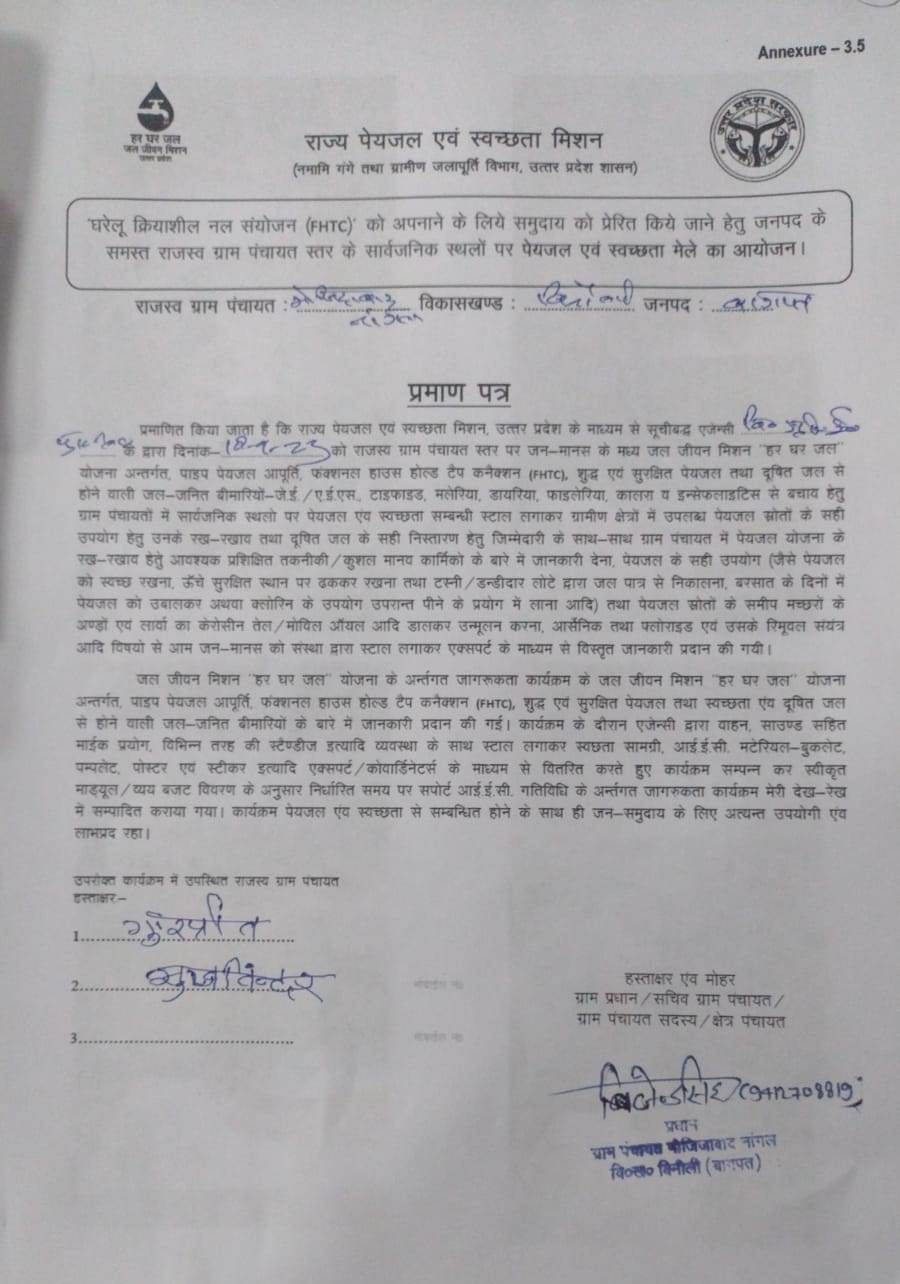 Annexure – 3.5
हर घर जल
जल जीवन मिशन
उत्तर प्रदेश
उत्तर प्रदेश सरकार
राज्य पेयजल एवं स्वच्छता मिशन
(नमामि गंगे तथा ग्रामीण जलापूर्ति विभाग, उत्तर प्रदेश शासन)
'घरेलू क्रियाशील नल संयोजन (FHTC)' को अपनाने के लिये समुदाय को प्रेरित किये जाने हेतु जनपद के
समस्त राजस्व ग्राम पंचायत स्तर के सार्वजनिक स्थलों पर पेयजल एवं स्वच्छता मेले का आयोजन।
राजस्व ग्राम पंचायत : विकासखण्ड : जनपद : बागपत
प्रमाण पत्र
प्रमाणित किया जाता है कि राज्य पेयजल एवं स्वच्छता मिशन, उत्तर प्रदेश के माध्यम से सूचीबद्ध एजेन्सी
के द्वारा दिनांक- को राजस्व ग्राम पंचायत स्तर पर जन–मानस के मध्य जल जीवन मिशन "हर घर जल"
योजना अन्तर्गत, पाइप पेयजल आपूर्ति, फंक्शनल हाउस होल्ड टैप कनैक्शन (FHTC), शुद्ध एवं सुरक्षित पेयजल तथा दूषित जल से
होने वाली जल–जनित बीमारियों–जे.ई./ए.ई.एस., टाइफाइड, मलेरिया, डायरिया, फाइलेरिया, कालरा व इन्सेफलाइटिस से बचाव हेतु
ग्राम पंचायतों में सार्वजनिक स्थलो पर पेयजल एंव स्वच्छता सम्बन्धी स्टाल लगाकर ग्रामीण क्षेत्रों में उपलब्ध पेयजल स्रोतों के सही
उपयोग हेतु उनके रख–रखाव तथा दूषित जल के सही निस्तारण हेतु जिम्मेदारी के साथ–साथ ग्राम पंचायत में पेयजल योजना के
रख–रखाव हेतु आवश्यक प्रशिक्षित तकनीकी/कुशल मानव कार्मिको के बारे में जानकारी देना, पेयजल के सही उपयोग (जैसे पेयजल
को स्वच्छ रखना, ऊँचे सुरक्षित स्थान पर ढककर रखना तथा टस्नी/डन्डीदार लोटे द्वारा जल पात्र से निकालना, बरसात के दिनों में
पेयजल को उबालकर अथवा क्लोरिन के उपयोग उपरान्त पीने के प्रयोग में लाना आदि) तथा पेयजल स्रोतों के समीप मच्छरों के
अण्ड़ों एवं लार्वा का केरोसीन तेल/मोविल ऑयल आदि डालकर उन्मूलन करना, आर्सेनिक तथा फ्लोराइड एवं उसके रिमूवल संयंत्र
आदि विषयो से आम जन–मानस को संस्था द्वारा स्टाल लगाकर एक्सपर्ट के माध्यम से विस्तृत जानकारी प्रदान की गयी।
जल जीवन मिशन "हर घर जल" योजना के अर्न्तगत जागरूकता कार्यक्रम के जल जीवन मिशन "हर घर जल" योजना
अन्तर्गत, पाइप पेयजल आपूर्ति, फंक्शनल हाउस होल्ड टैप कनैक्शन (FHTC), शुद्ध एवं सुरक्षित पेयजल तथा स्वच्छता एंव दूषित जल
से होने वाली जल–जनित बीमारियों के बारे में जानकारी प्रदान की गई। कार्यक्रम के दौरान एजेन्सी द्वारा वाहन, साउण्ड सहित
माईक प्रयोग, विभिन्न तरह की स्टैण्डीज इत्यादि व्यवस्था के साथ स्टाल लगाकर स्वछता सामग्री, आई.ई.सी. मटेरियल–बुकलेट,
पम्पलेट, पोस्टर एवं स्टीकर इत्यादि एक्सपर्ट/कोवार्डिनेटर्स के माध्यम से वितरित करते हुए कार्यक्रम सम्पन्न कर स्वीकृत
माड्यूल/व्यय बजट विवरण के अनुसार निर्धारित समय पर सपोर्ट आई.ई.सी. गतिविधि के अर्न्तगत जागरुकता कार्यक्रम मेरी देख–रेख
में सम्पादित कराया गया। कार्यक्रम पेयजल एंव स्वच्छता से सम्बन्धित होने के साथ ही जन–समुदाय के लिए अत्यन्त उपयोगी एंव
लाभप्रद रहा।
उपरोक्त कार्यक्रम में उपस्थित राजस्व ग्राम पंचायत
हस्ताक्षर–
1. गुरप्रीत
2. सुखविन्दर
3.
हस्ताक्षर एंव मोहर
ग्राम प्रधान/सचिव ग्राम पंचायत/
ग्राम पंचायत सदस्य/क्षेत्र पंचायत
प्रधान
ग्राम पंचायत मौजिजाबाद नांगल
वि०ख० बिनौली (बागपत)